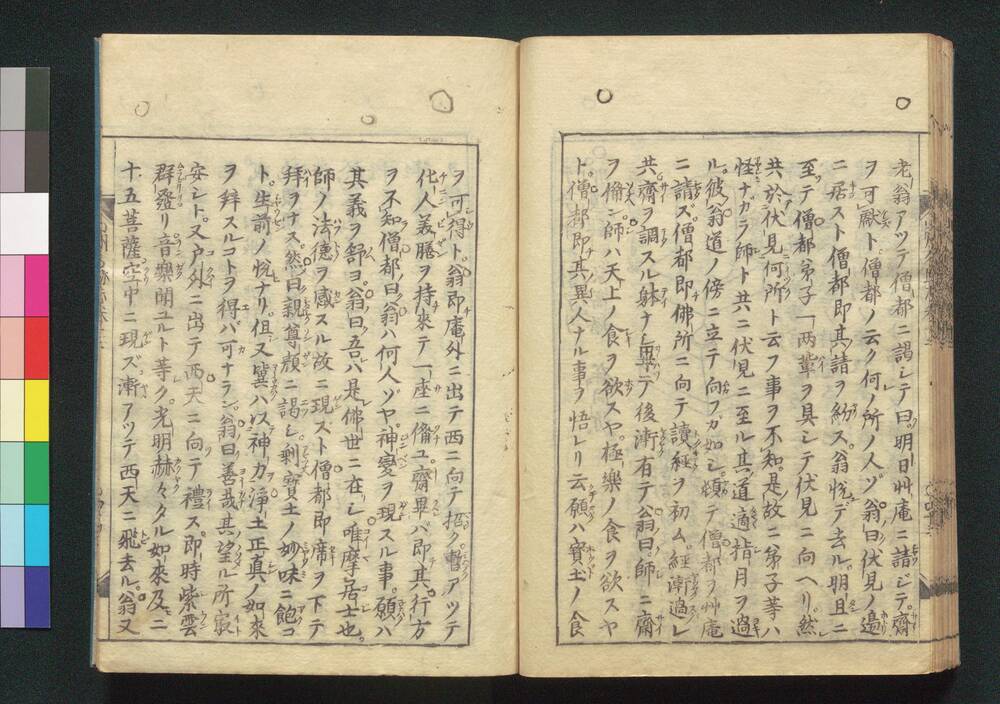 老翁アツテ僧都ニ謁シテ曰明日艸庵ニ請ジテ齋
ヲ可獻ト僧都ノ云ク何ノ所ノ人ゾ翁曰伏見ノ邉
ニ居スト僧都即其請ヲ納ス翁悦デ去ル明旦ニ
至テ僧都弟子一両輩ヲ具シテ伏見ニ向ヘリ然
共於伏見何所ト云フ事ヲ不知是故ニ弟子等ハ
怪ナガラ師ト共ニ伏見ニ至ル其道適指月ヲ過
ル彼翁道ノ傍ニ立テ向フガ如シ頻テ僧都ヲ艸庵
ニ請ズ僧都即佛所ニ向テ讀經ヲ初ム經漸過レ
共齋ヲ調スル躰ナシ畢テ後漸有テ翁曰師ニ齋
ヲ備ン師ハ天上ノ食ヲ欲スヤ極樂ノ食ヲ欲スヤ
ト僧都即其異人ナル事ヲ悟レリ云願ハ寳土ノ食
ヲ可得ト翁即庵外ニ出テ西ニ向テ招ク暫アツテ
化人美膳ヲ持來テ一座ニ備ユ齋畢バ即其行方
ヲ不知僧都曰翁ハ何人ゾヤ神變ヲ現スル事願ハ
其義ヲ舒ヨ翁曰吾ハ是佛世ニ在シ唯摩居士也
師ノ法德ヲ感スル故ニ現スト僧都即席ヲ下テ
拜ヲナス然曰親尊顔ニ謁シ剰寳土ノ妙味ニ飽コ
ト生前ノ悦ナリ但又冀ハ以神力浄土正真ノ如來
ヲ拜スルコトヲ得バ可ナラン翁曰善哉其望ル所最
安シト又戸外ニ出テ西天ニ向テ禮ス即時紫雲
群發リ音樂聞ユルト等ク光明赫々タル如來及ニ
十五菩薩空中ニ現ズ漸アツテ西天ニ飛去ル翁又